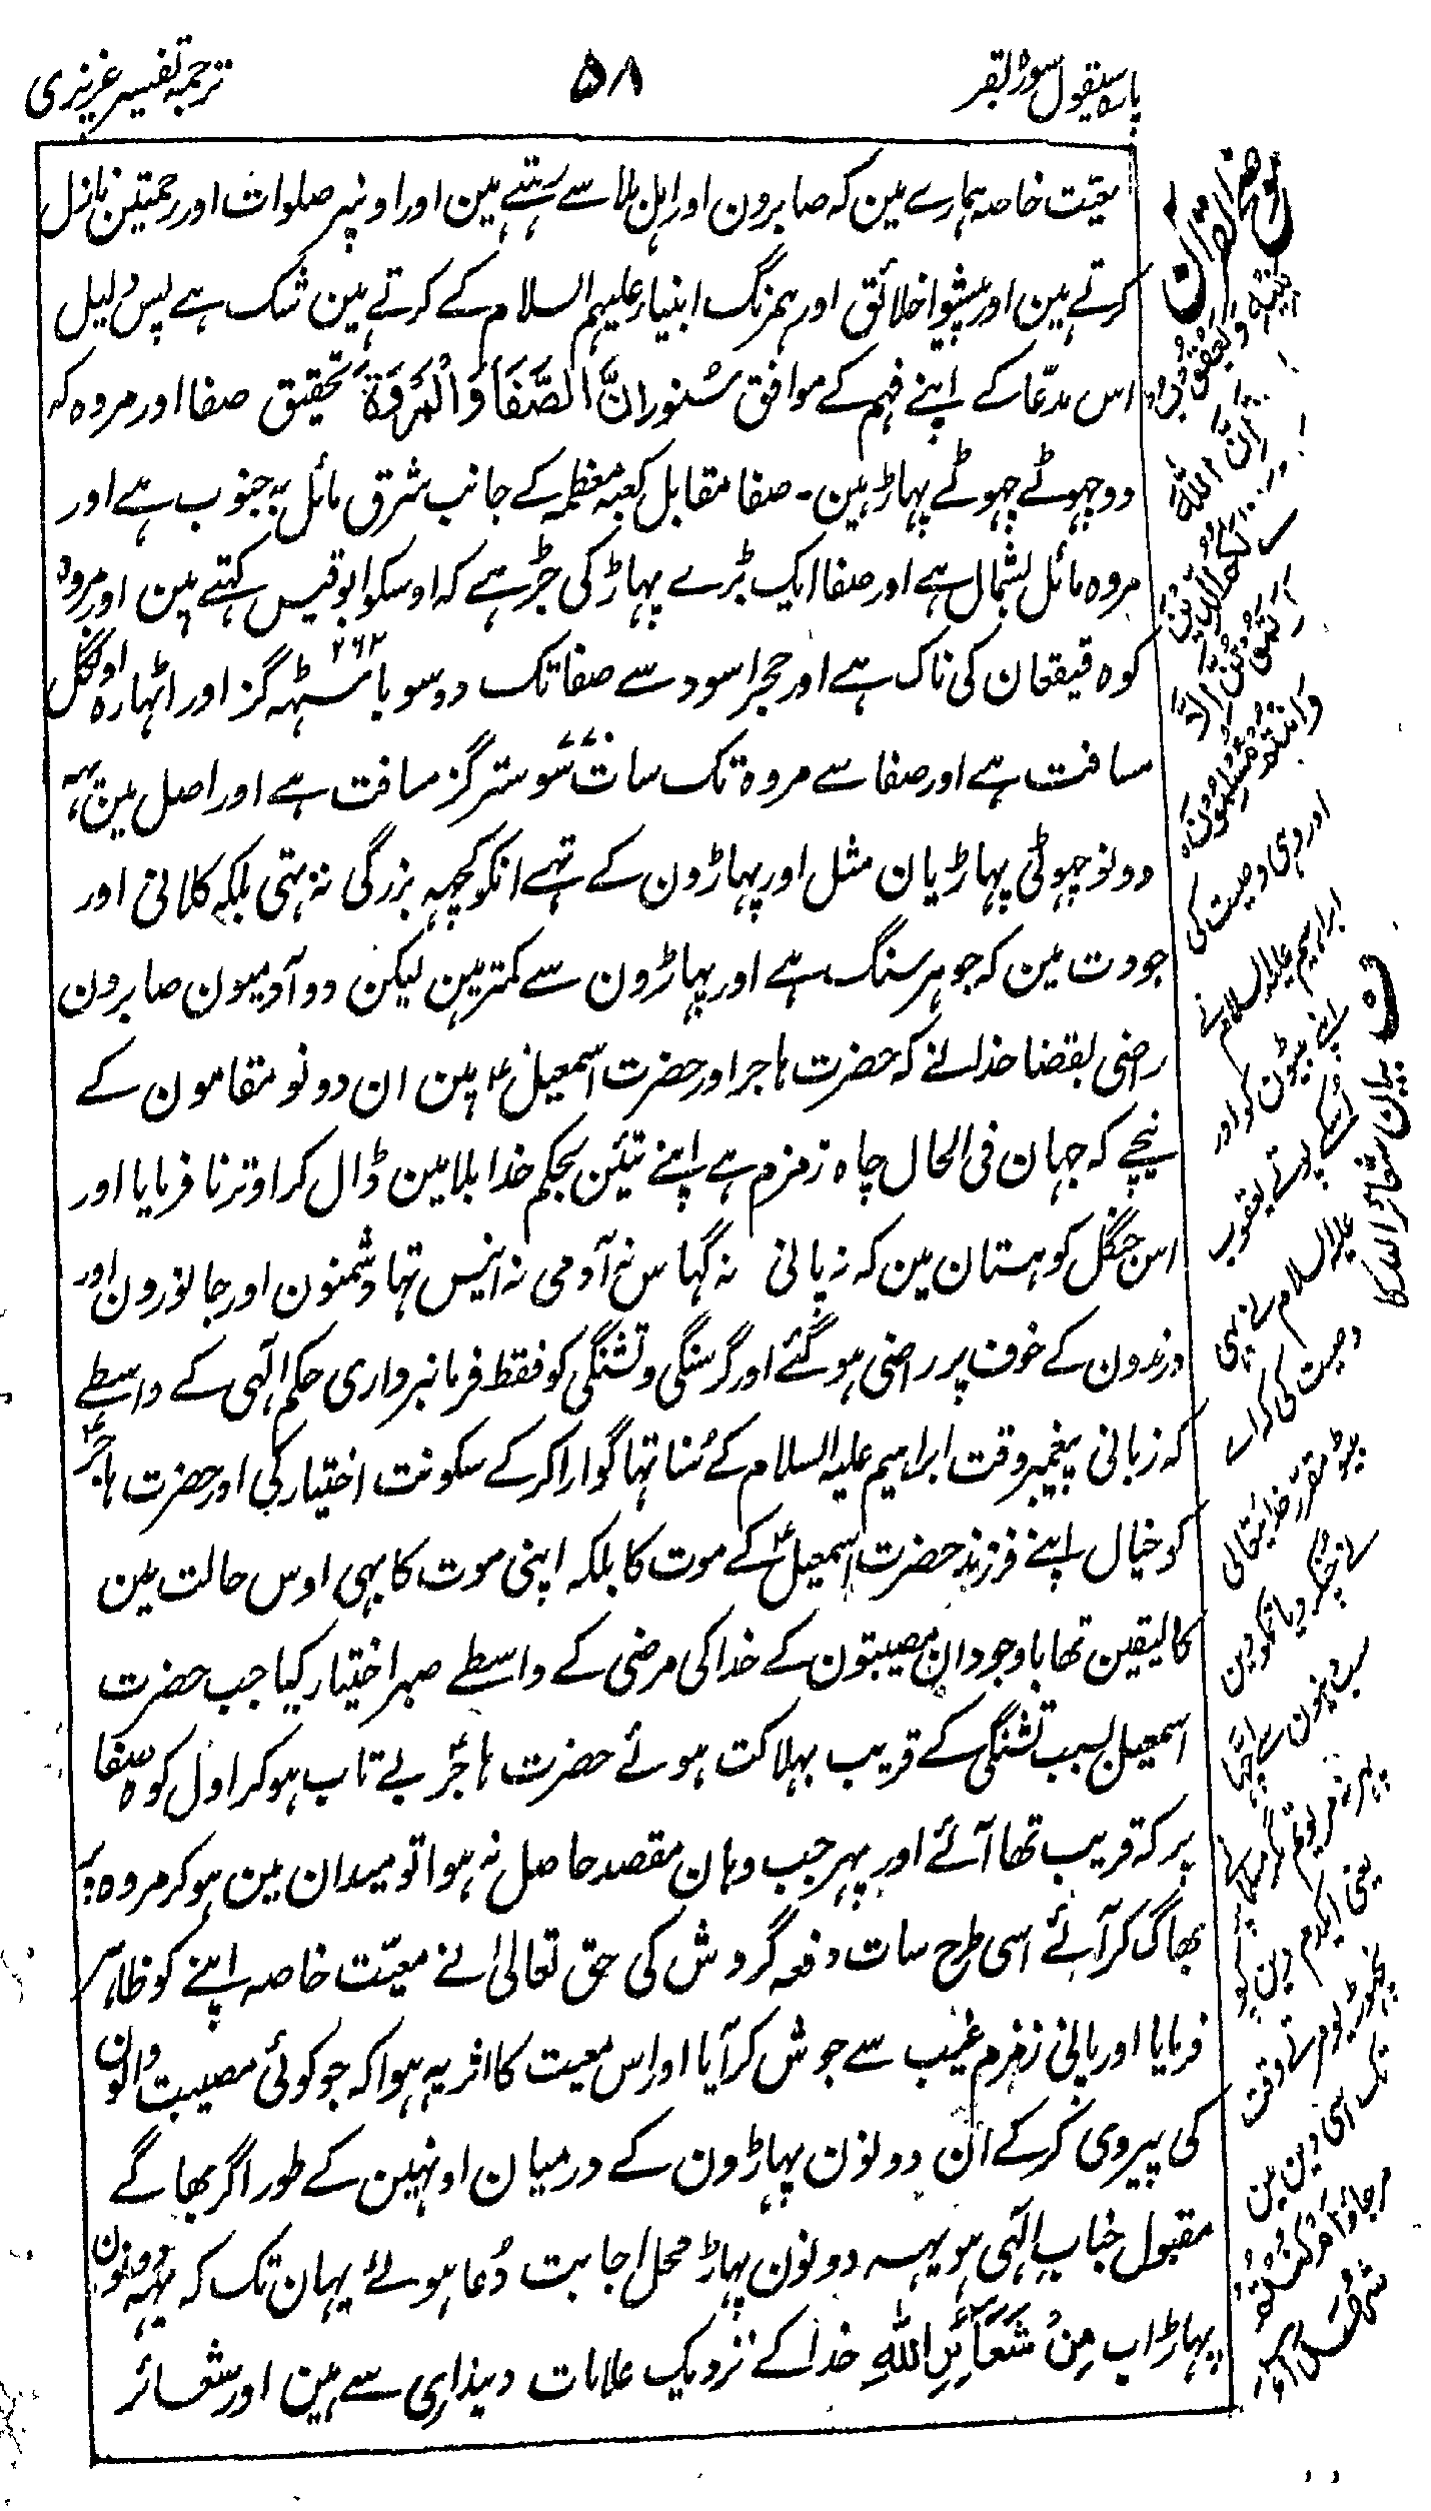 پارہ سیقول سورۂ بقر
۵۸
ترجمہ تفسیر عزیزی
معیّت خاصہ ہمارے مین کہ صابرون اور اہل بلا سے رہتے ہین اور اونپر صلوات اور رحمتین نازل
کرتے ہین اور پیشوا خلائق اور ہمرنگ انبیار علیہم السلام کے کرتے ہین شک ہے پس دلیل
اس مدّعا کے اپنے فہم کے موافق سنو اِنَّ الصَّفَا وَالْمَرْوَۃَ تحقیق صفا اور مروہ کہ
دو چہوٹے چہوٹے پہاڑ ہین۔ صفا مقابل کعبہ معظمہ کے جانب شرق مائل بہ جنوب ہے اور
مروہ مائل بشمال ہے اور صفا ایک بڑے پہاڑ کی جڑ ہے کہ اوسکو ابو قبیس کہتے ہین اور مروہ
کوہ قیقعان کی ناک ہے اور حجر اسود سے صفا تک دو سو باسٹہہ ۲۶۲ گز اور اٹہارہ اونگل
مسافت ہے اور صفا سے مروہ تک سات سو ستر ۷۷۰ گز مسافت ہے اور اصل مین یہہ
دونو چہوٹی پہاڑیان مثل اور پہاڑون کے تہے انکو کچہہ بزرگی نہ تہی بلکہ کلانی اور
جودت مین کہ جوہر سنگ ہے اور پہاڑون سے کمتر ہین لیکن دو آدمیون صابرون
راضی بقضا خدا نے کہ حضرت ہاجر اور حضرت اسمعیل ؑ ہین ان دونو مقامون کے
نیچے کہ جہان فی الحال چاہ زمزم ہے اپنے تئین بحکم خدا بلا مین ڈال کر اوترنا فرمایا اور
اس جنگل کوہستان مین کہ نہ پانی نہ گہاس نہ آدمی نہ انیس تہا دشمنون اور جانورون اور
درندون کے خوف پر راضی ہو گئے اور گرسنگی و تشنگی کو فقط فرمانبرداری حکم الٰہی کے واسطے
کہ زبانی پیغمبر وقت ابراہیم علیہ السلام کے سنا تہا گوارا کر کے سکونت اختیار کی اور حضرت ہاجر ؑ
کو خیال اپنے فرزند حضرت اسمعیل ؑ کے موت کا بلکہ اپنی موت کا بہی اوس حالت مین
کا لیقین تھا باوجود ان مصیبتون کے خدا کی مرضی کے واسطے صبر اختیار کیا جب حضرت
اسمعیل بسبب تشنگی کے قریب بہلاکت ہوئے حضرت ہاجر ؑ بے تاب ہو کر اول کوہ صفا
پر کہ قریب تھا آئے اور پہر جب وہان مقصد حاصل نہ ہوا تو میدان مین ہو کر مروہ پر
بھاگ کر آئے اسی طرح سات دفعہ گردش کی حق تعالیٰ نے معیّت خاصہ اپنے کو ظاہر
فرمایا اور پانی زمزم غیب سے جوش کر آیا اور اس معیت کا اثر یہ ہوا کہ جو کوئی مصیبت والون
کی پیروی کر کے ان دونون پہاڑون کے درمیان اونہین کے طور اگر بھاگے
مقبول جناب الٰہی ہو یہہ دونون پہاڑ محل اجابت دُعا ہوئے یہان تک کہ یہہ دونون
پہاڑ اب مِنْ شَعَآئِرِ اللّٰہِ خدا کے نزدیک علامات دینداری سے ہین اور شعائر
اور وہی وصیت کی
ابراہیم علیہ السلام نے
اپنے بیٹون کو اور
یعقوب
علیہ السلام نے بہی
وصیت کی کہ اے
بیٹو مقرر خدایتعالی
نے چنکر دیا تمکو دین
تک اسی دین مین
ف بیان شعائر اللہ کا